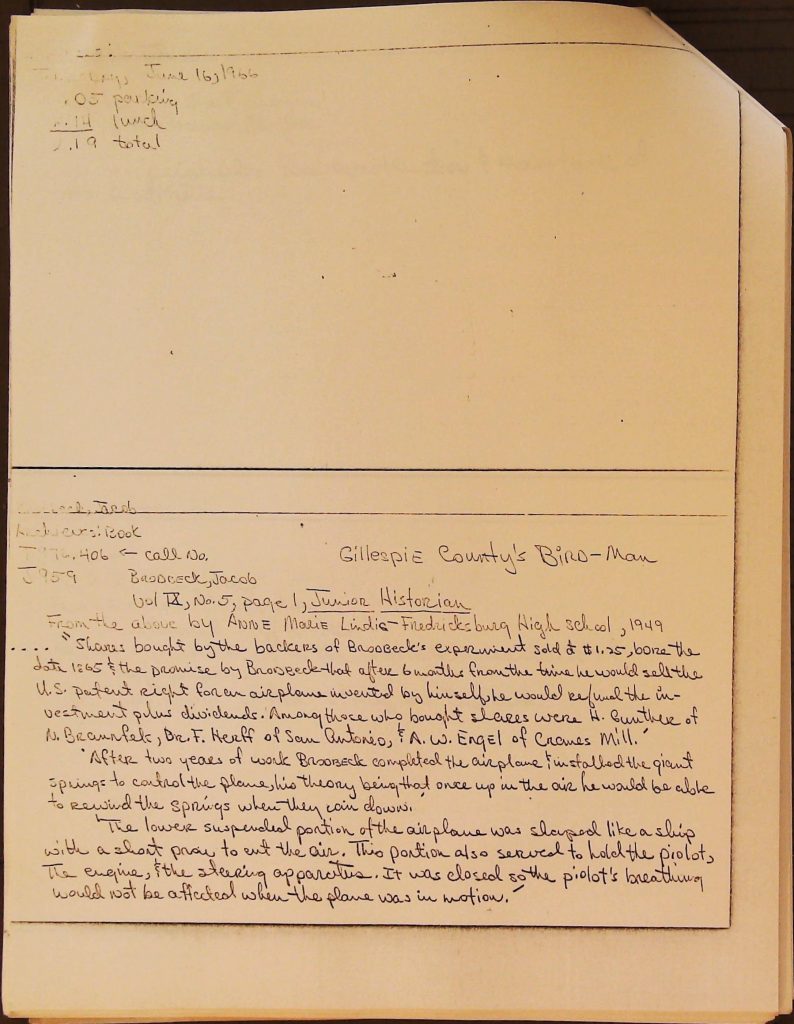 June 16, 1966
.05 parking
.14 lunch
.19 total
Jacob
Book
.406 ← call No.
Gillespie County's Bird-Man
J959 Brodbeck, Jacob
Vol IX, No. 5, page 1, Junior Historian
From the above by Anne Marie Lindig-Fredricksburg High School, 1949
.... "Shares bought by the backers of Brodbeck's experiment sold @ $1.25, bore the
date 1865 & the promise by Brodbeck that after 6 months from the time he would sell the
U.S. patent right for an airplane invented by himself, he would refund the in-
vestment plus dividends. Among those who bought shares were H. Gunther of
N. Braunfels, Dr. F. Herff of San Antonio, & A. W. Engel of Cranes Mill."
"After two years of work Brodbeck completed the airplane & installed the giant
springs to control the plane, his theory being that once up in the air he would be able
to rewind the springs when they ran down.
"The lower suspended portion of the airplane was shaped like a ship
with a short prow to cut the air. This portion also served to hold the piolot,
the engine, & the steering apparatus. It was closed so the piolot's breathing
would not be affected when the plane was in motion."